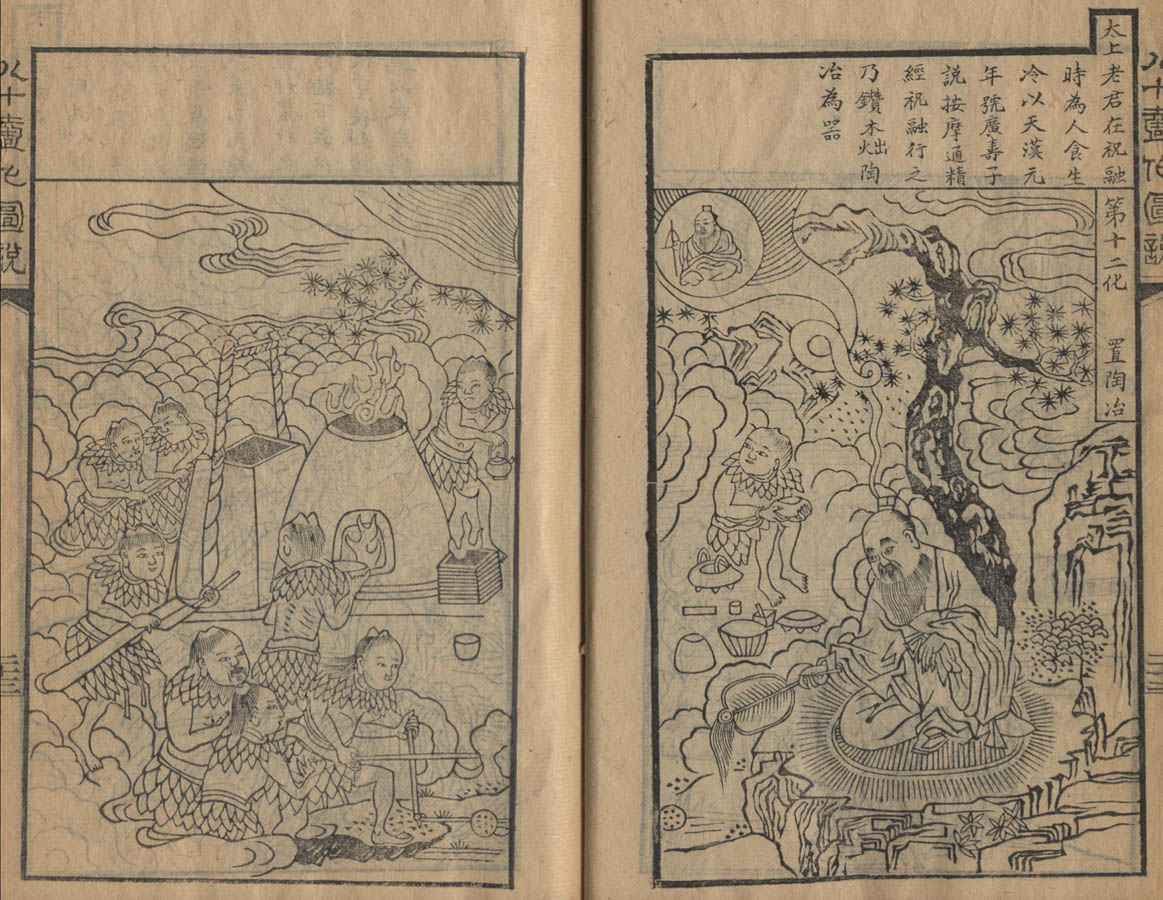 八十壹化圖說
太上老君在祝融
時為人食生
冷以天漢元
年號廣壽子
說按摩通精
經祝融行之
乃鑽木出火陶
冶為器
第十二化 置陶冶
八十壹化圖說